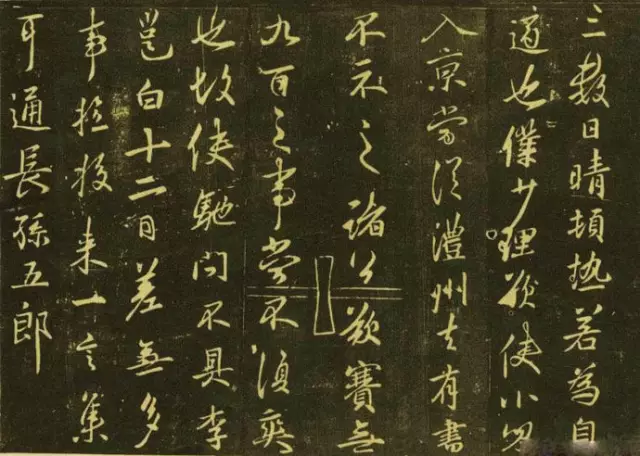 三數日晴頓熱若為自
適也僕少理欲使小男
入京當從澧州去有書
不示之諸公欲賽無
九百之事當不須爽
也故使馳問不具李
邕白十二日差無多
事來一言集
耳通長孫五郎